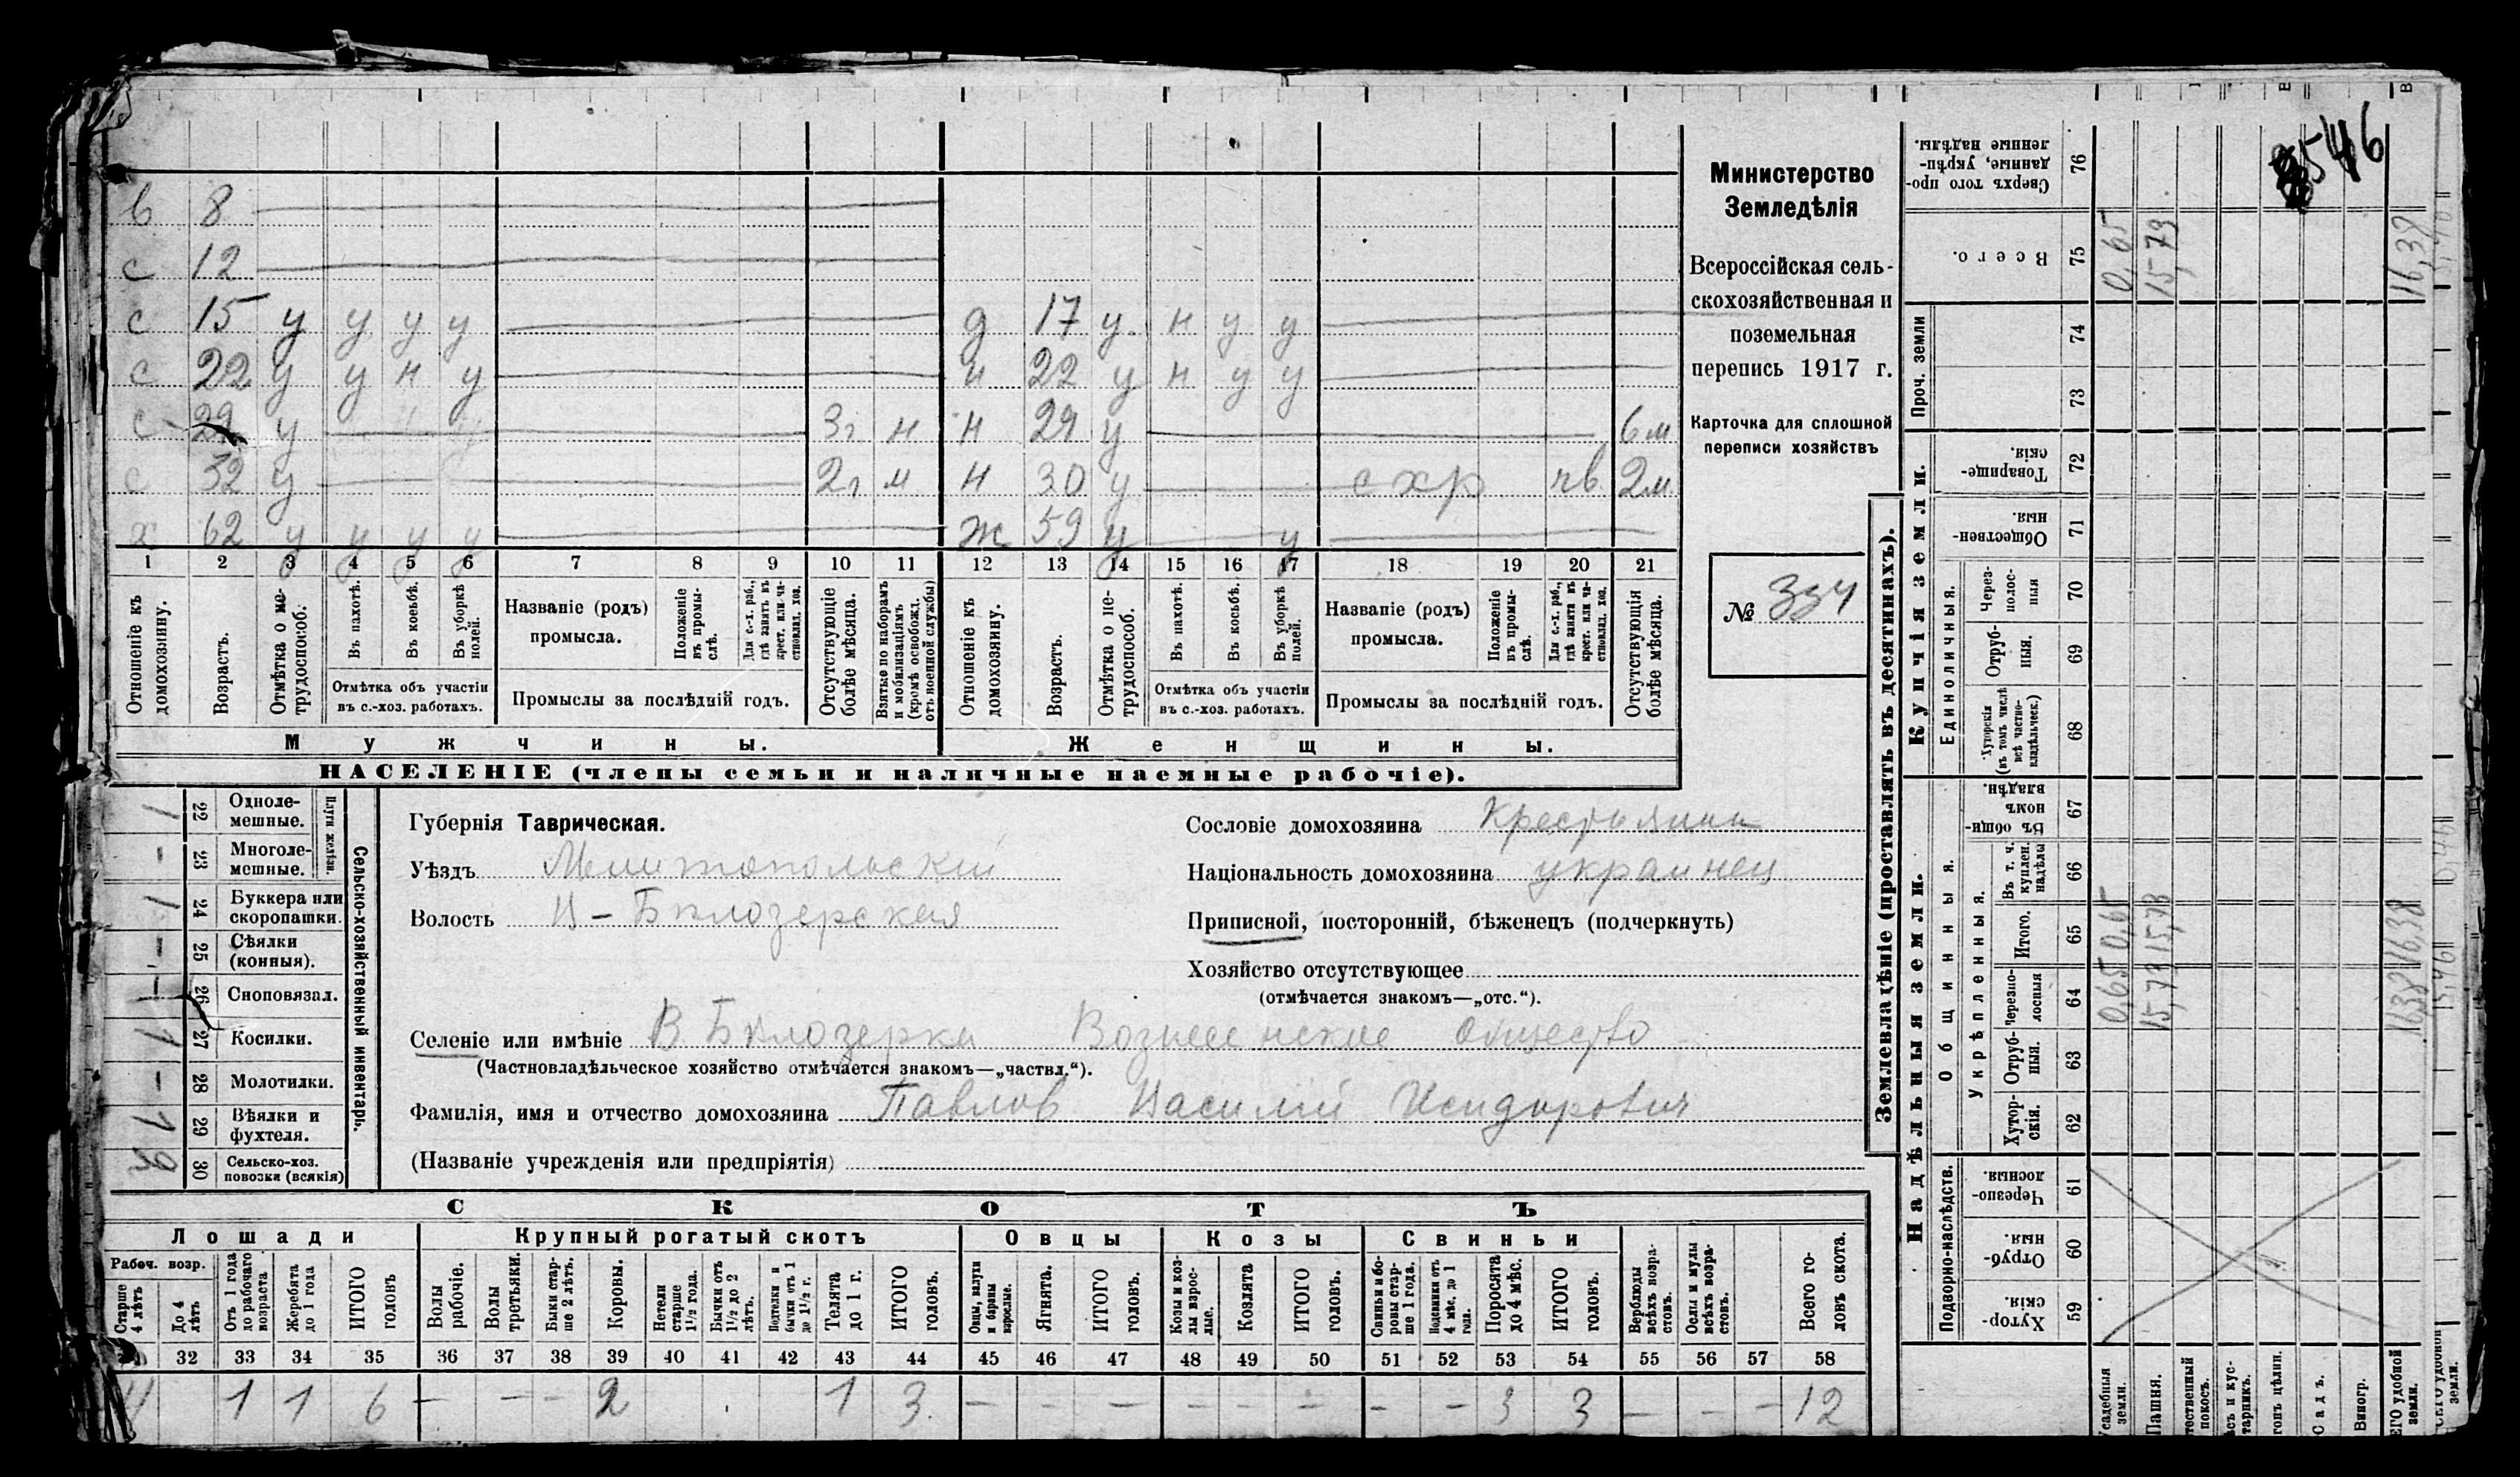 8546
в 8
с 12
с 15 у у у у д 17 у н у у
с 22 у у н у н 22 у н у у
с 29 у 3г н н 29 у 6м
с 32 у 2г м н 30 у с х р чв 2м
х 62 у у у у ж 59 у у
1 2 3 4 5 6 7 8 9 10 11 12 13 14 15 16 17 18 19 20 21
Отношеніе къ домохозяину.
Возрастъ.
Отмѣтка о не-трудоспособ.
Въ пахотѣ.
Въ косьбѣ.
Въ уборкѣ полей.
Отмѣтка объ участіи
въ с.-хоз. работахъ.
Названіе (родъ)
промысла.
Положеніе въ промы-слѣ.
Для с.-х. раб., гдѣ занятъ въ крест. или ча-стновлад. хоз.
Промыслы за послѣдній годъ.
Отсутствующіе болѣе мѣсяца.
Взятые по наборамъ и мобилизаціямъ (кромѣ освобожд. отъ военной службы)
Отношеніе къ домохозяину.
Возрастъ.
Отмѣтка о не-трудоспособ.
Въ пахотѣ.
Въ косьбѣ.
Въ уборкѣ полей.
Отмѣтка объ участіи
въ с.-хоз. работахъ.
Названіе (родъ)
промысла.
Положеніе въ промы-слѣ.
Для с.-х. раб., гдѣ занята въ крест. или ча-стновлад. хоз.
Промыслы за послѣдній годъ.
Отсутствующія болѣе мѣсяца.
Мужчины. Женщины.
НАСЕЛЕНІЕ (члены семьи и наличные наемные рабочіе).
Министерство
Земледѣлія
Всероссійская сель-
скохозяйственная и
поземельная
перепись 1917 г.
Карточка для сплошной
переписи хозяйствъ
№ 334
Сельско-хозяйственный инвентарь.
Плуги желѣзн.
1 22 Одноле-мешные.
- 23 Многоле-мешные.
1 24 Буккера или скоропашки.
- 25 Сѣялки (конныя).
- 26 Сноповязал.
1 27 Косилки.
- 28 Молотилки.
1 29 Вѣялки и фухтеля.
2 30 Сельско-хоз. повозки (всякія)
Губернія Таврическая.
Уѣздъ Мелитопольскій
Волость В-Бѣлозерская
Сословіе домохозяина Крестьянин
Національность домохозяина украинец
Приписной, посторонній, бѣженецъ (подчеркнуть)
Хозяйство отсутствующее
(отмѣчается знакомъ—„отс.“).
Селеніе или имѣніе В Бѣлозерка Вознесенское общество
(Частновладѣльческое хозяйство отмѣчается знакомъ—„частвл.“).
Фамилія, имя и отчество домохозяина Павлов Василій Исидорович
(Названіе учрежденія или предпріятія)
СКОТЪ
Лошади Крупный рогатый скотъ Овцы Козы Свиньи
Рабоч. возр.
Старше 4 лѣтъ
До 4 лѣтъ
Отъ 1 года до рабочаго возраста
Жеребята до 1 года
ИТОГО головъ
Волы рабочіе.
Волы третьяки.
Быки стар-ше 2 лѣтъ.
Коровы.
Нетели старше 1½ года.
Бычки отъ 1½ до 2 лѣтъ.
Подтелки и бычки отъ 1 до 1½ г.
Телята до 1 г.
ИТОГО головъ.
Овцы, валухи и бараны взрослые.
Ягнята.
ИТОГО головъ.
Козы и коз-лы взрос-лые.
Козлята
ИТОГО головъ.
Свиньи и бо-ровы стар-ше 1 года.
Подсвинки отъ 4 мѣс. до 1 года.
Поросята до 4 мѣс.
ИТОГО головъ.
Верблюды всѣхъ возра-стовъ.
Ослы и мулы всѣхъ возра-стовъ.
Всего го-ловъ скота.
32 33 34 35 36 37 38 39 40 41 42 43 44 45 46 47 48 49 50 51 52 53 54 55 56 57 58
4 1 1 6 - - - 2 1 3 - - - - - - - - 3 3 - - - 12
Землевладѣніе (проставлять въ десятинахъ).
Купчія земли.
Проч. земли
Единоличныя.
Надѣльныя земли.
Общинныя.
Укрѣпленныя.
Подворно-наслѣдств.
Сверхъ того про-данные, укрѣп-ленные надѣлы. 76
Всего. 75 0,65 15,73 16,38
74
73
Товарище-скія. 72
Обществен-ныя. 71
Через-полос-ныя 70
Отруб-ныя. 69
Хуторскія (въ томъ числѣ всѣ частно-владѣльческ.) 68
Въ общин-номъ владѣн. 67
Въ т. ч. куплен. надѣлы 66
Итого. 65 0,65 15,73 16,38
Черезпо-лосныя 64 0,65 15,73 16,38
Отруб-ныя. 63
Хутор-скія. 62
Черезпо-лосныя 61
Отруб-ныя. 60
Хутор-скія. 59
Усадебныя земли.
Пашня.
покосъ.
Садъ.
Виногр.
удобной земли.